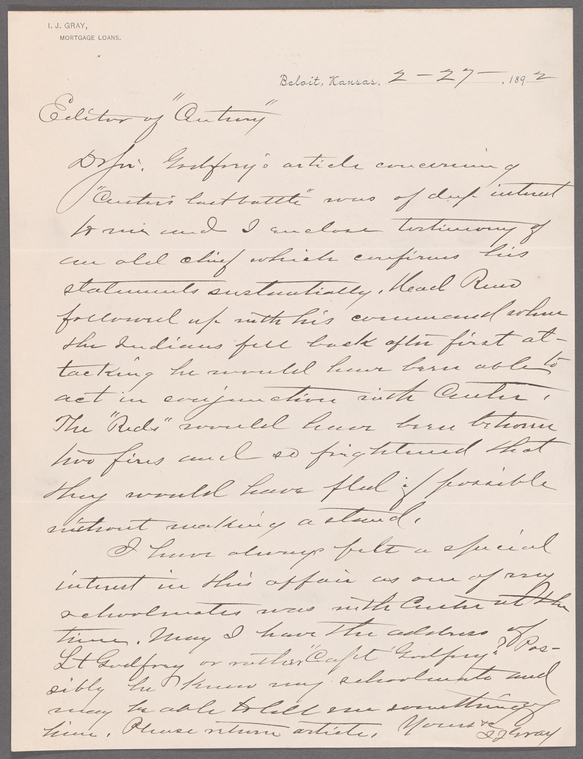 I. J. GRAY,
MORTGAGE LOANS.
Beloit, Kansas. 2-27- 1892
Editor of "Century"
Dr Sir. Godfrey's article concerning
"Custer's last battle" was of deep interest
to me and I enclose testimony of
an old chief which confirms his
statements substantially. Had Reno
followed up with his command when
the Indians fell back after first at-
tacking he would have been able to
act in conjunction with Custer.
The "Reds" would have been between
two fires and so frightened that
they would have fled if possible
without making a stand.
I have always felt a special
interest in this affair as one of my
schoolmates was with Custer at the
time. May I have the address of
Lt Godfrey or rather "Capt Godfrey"? Pos-
sibly he knew my schoolmate and
may be able to tell me something of
him. Please return article. Yours &c
I J Gray